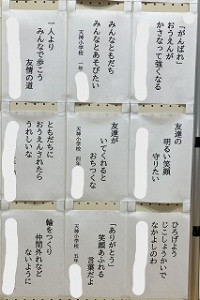 「がんばれ」
おうえんが
かさなって強くなる
みんなともだち
みんなとあそびたい
天神小学校 一年
一人より
みんなで歩こう
友情の道
友達の
明るい笑顔
守りたい
友達が
いてくれると
おちつくな
天神小学校 四年
ともだちに
おうえんされたら
うれしいな
ひろげよう
じこしょうかいで
なかよしのわ
「ありがとう」
笑顔あふれる
言葉だよ
天神小学校 五年
輪をつくり
仲間外れなど
ないように